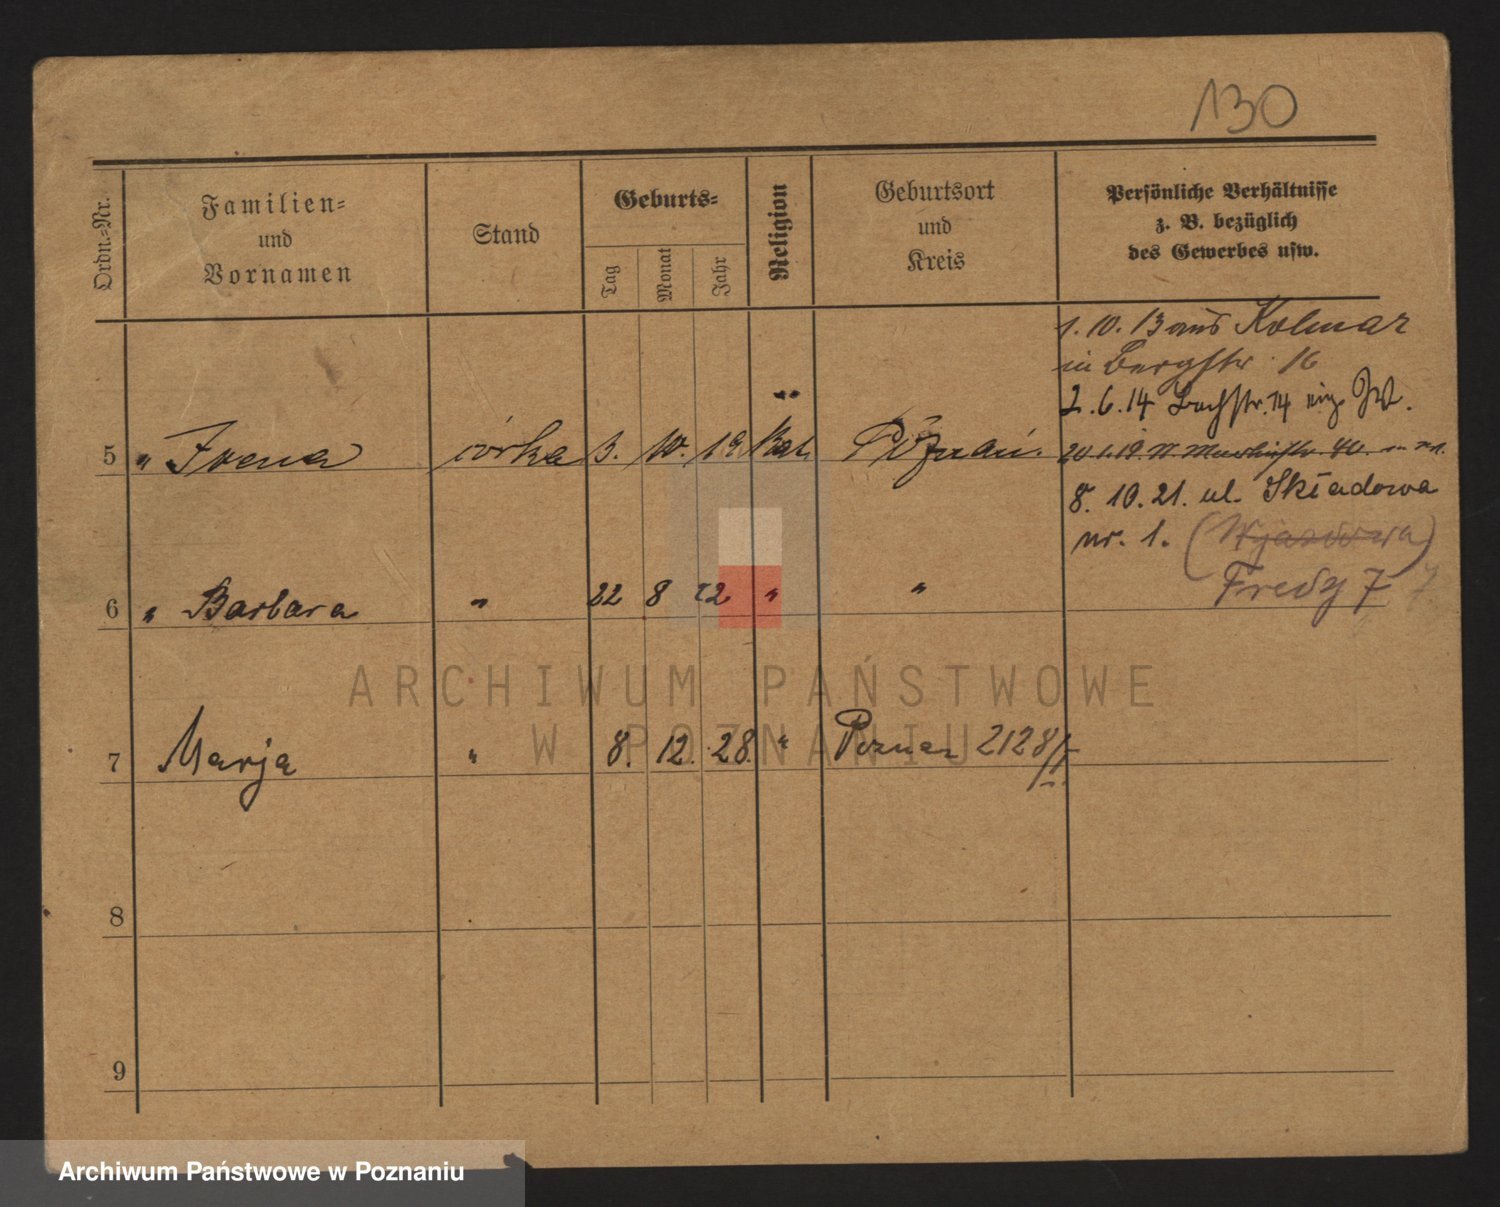 130
Ordn.-Nr.
Familien-
und
Vornamen
Stand
Geburts-
Tag
Monat
Jahr
Religion
Geburtsort
und
Kreis
Persönliche Verhältnisse
z. B. bezüglich
des Gewerbes usw.
1. 10. 13 aus Kolmar
in Bergstr. 16
2. 6. 14 Bachstr. 14
5 " Irena córka 3. 10. 19 Kat. Poznań.
8. 10. 21. ul. Składowa
nr. 1.
Fredry 7
6 " Barbara " 22 8 22 " "
ARCHIWUM PAŃSTWOWE
W POZNANIU
7 Marja " 8. 12. 28. " Poznań 2128/
8
9
Archiwum Państwowe w Poznaniu